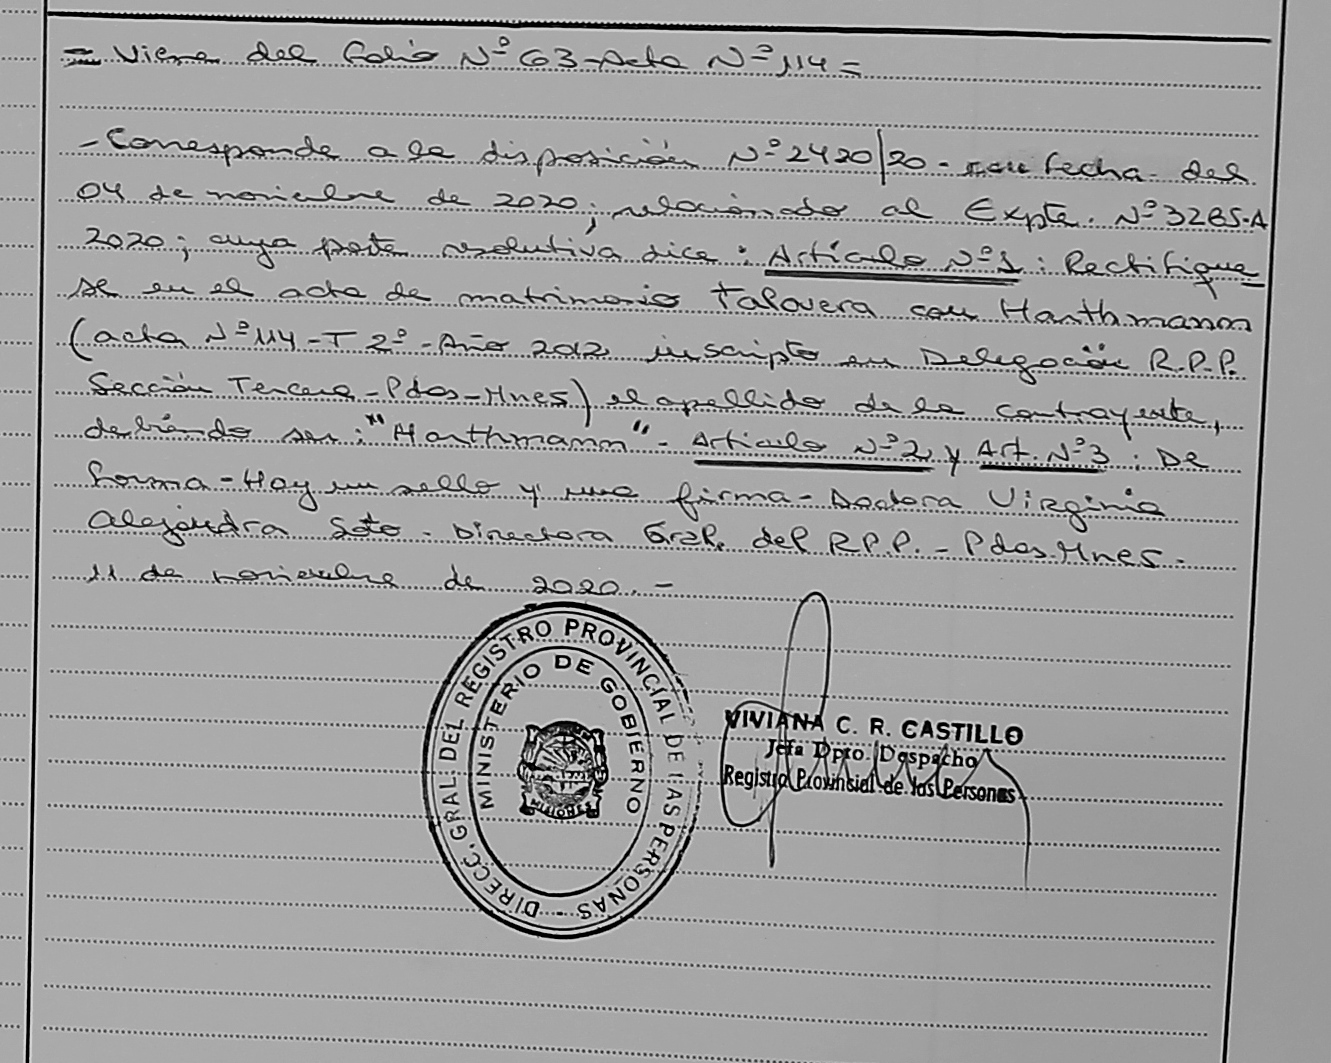 = Viene del Folio Nº 63 - Acta Nº 114 =
- Corresponde a la disposición Nº 2420/20 - con fecha del
04 de noviembre de 2020; relacionado al Expte. Nº 3285-A
2020; cuya parte resolutiva dice: Artículo Nº 1: Rectifique
se en el acta de matrimonio Talavera con Hanthmann
(acta Nº 114 - T 2º - Año 2012 inscripto en Delegación R.P.P.
Sección Tercera - Pdas - Mnes) el apellido de la contrayente,
debiendo ser: "Harthmann" - Articulo Nº 2 y Art. Nº 3: De
forma - Hay un sello y una firma - Doctora Virginia
Alejandra Soto - Directora Gral. del R.P.P. - Pdas. Mnes -
11 de noviembre de 2020. -
DIRECC. GRAL. DEL REGISTRO PROVINCIAL DE LAS PERSONAS -
MINISTERIO DE GOBIERNO
MISIONES
VIVIANA C. R. CASTILLO
Jefa Dpto. Despacho
Registro Provincial de las Personas